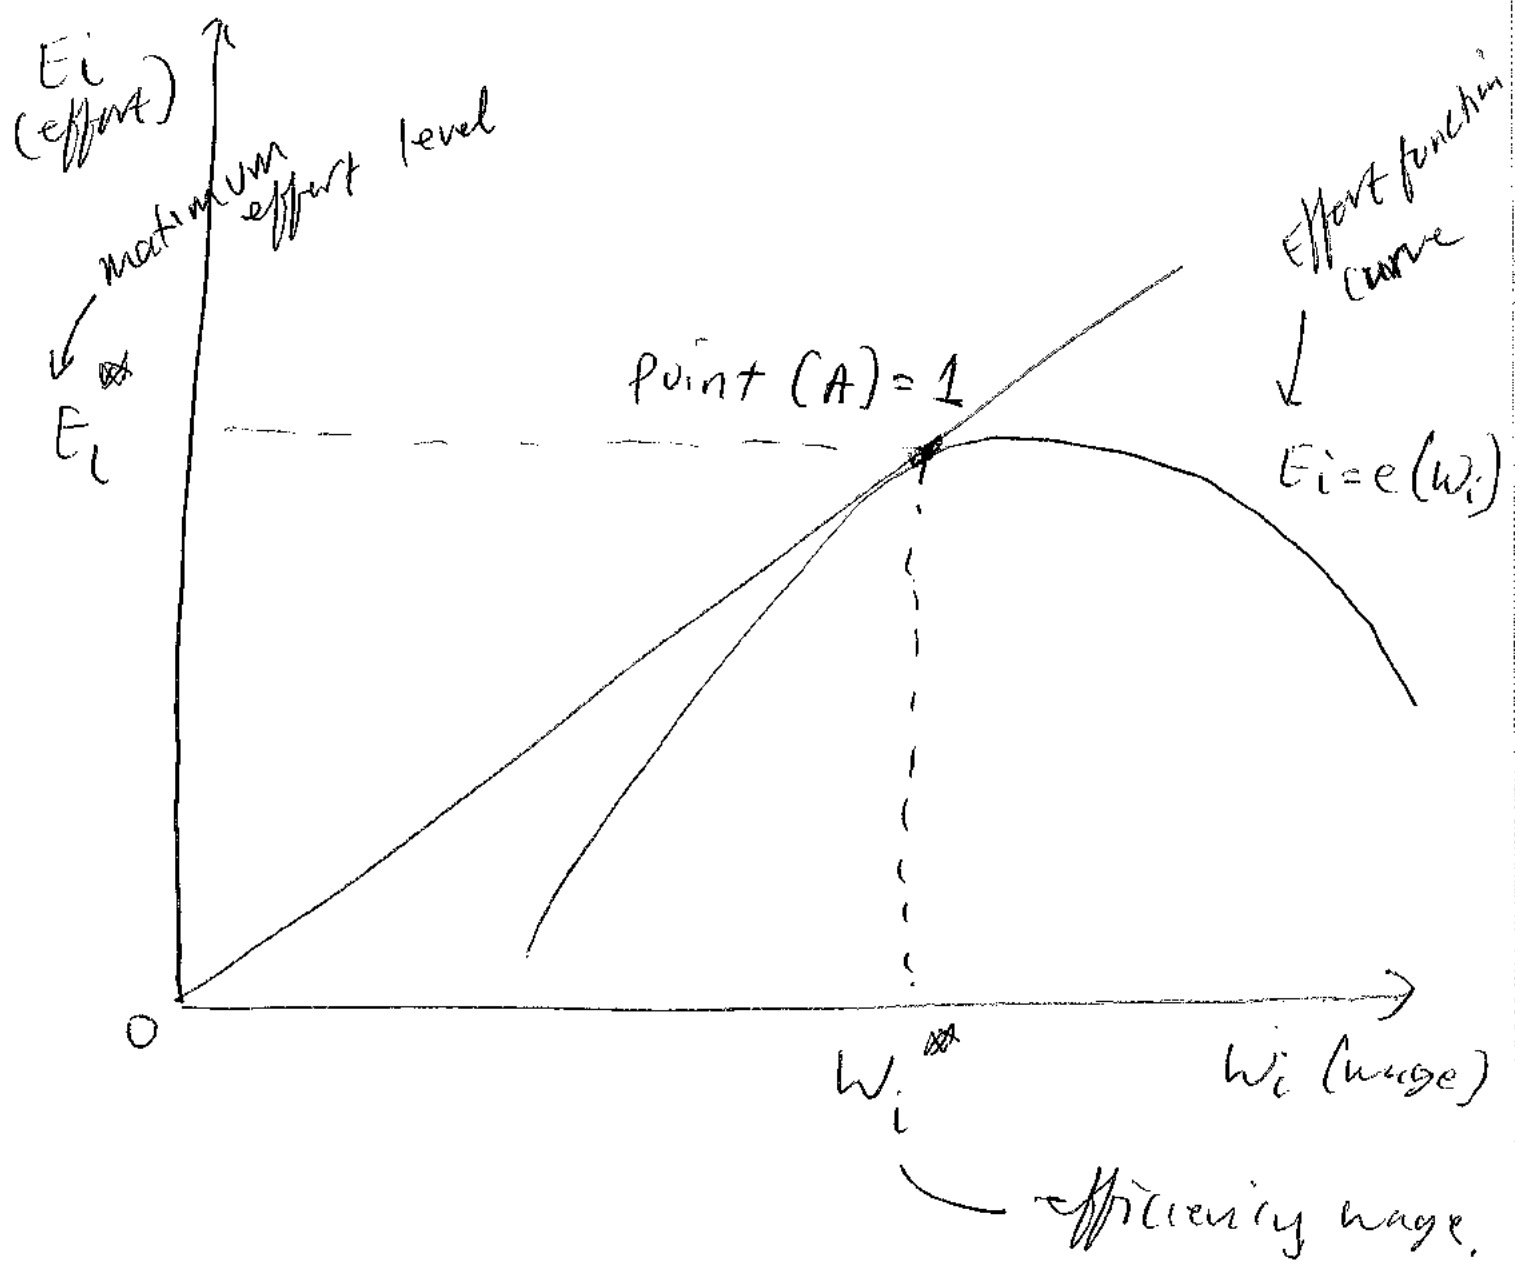 Ei
(effort)
maximum
effort level
Ei*
Point (A) = 1
Effort function
curve
Ei = e(Wi)
0
Wi*
Wi (wage)
efficiency wage.